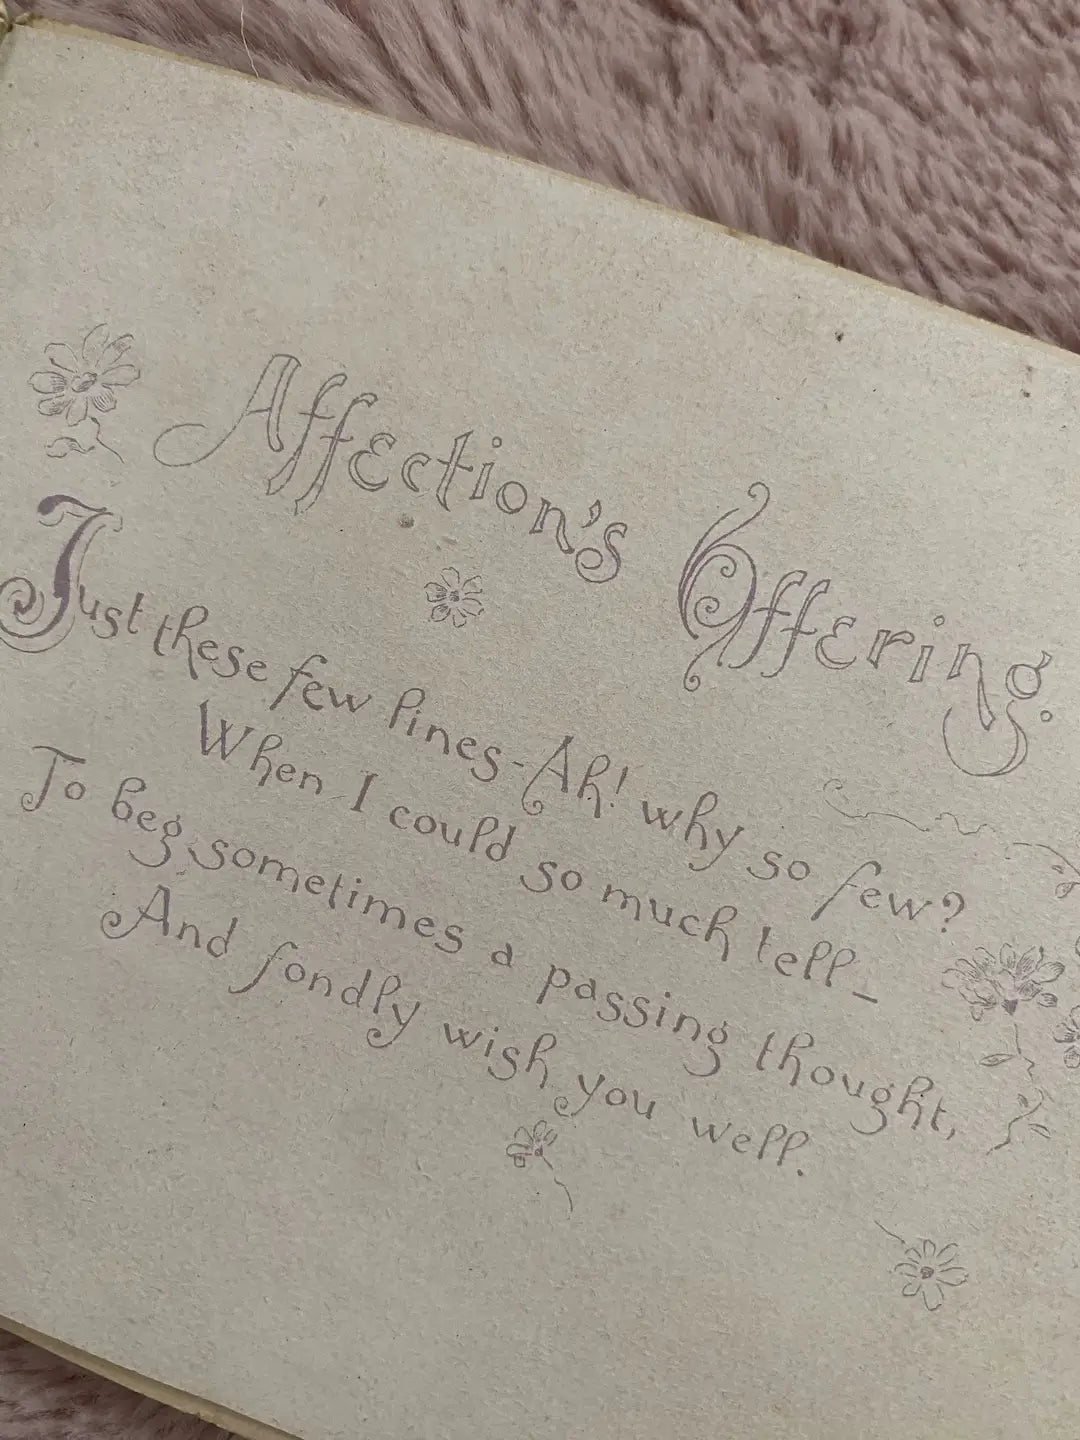 Affection's Offering.
Just these few lines-Ah! why so few?
When I could so much tell_
To beg sometimes a passing thought,
And fondly wish you well.